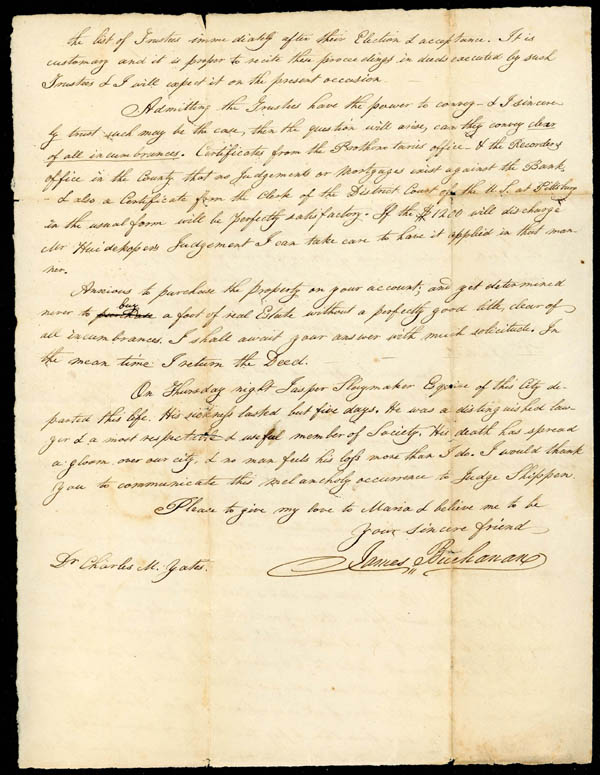 the list of Trustees immediately after their Election & acceptance. It is
customary and it is proper to recite these proceedings in deeds executed by such
Trustees & I will expect it on the present occasion
Admitting the Trustees have the power to convey & I sincere
ly trust such may be the case, then the question will arise, can they convey clear
of all incumbrances. Certificates from the Prothonotaries office & the Recorders
office in the County that no Judgements or Mortgages exist against the Bank,
& also a Certificate from the Clerk of the District Court of the U. S. at Pittsburg
in the usual form will be perfectly satisfactory. If the $1200 will discharge
Mr Huidekoper's Judgement I can take care to have it applied in that man
ner.
Anxious to purchase the property on your account; and yet determined
never to purchase buy a foot of real Estate without a perfectly good title, clear of
all incumbrances, I shall await your answer with much solicitude. In
the mean time I return the Deed.
On Thursday night Jasper Slaymaker Esquire of this City de
parted this life. His sickness lasted but five days. He was a distinguished law
yer & a most respectable & useful member of Society. His death has spread
a gloom over our city, & no man feels his loss more than I do. I would thank
you to communicate this melancholy occurrence to Judge Shippen.
Please to give my love to Maria & believe me to be
your sincere friend
James Buchanan
Dr Charles M. Yates.